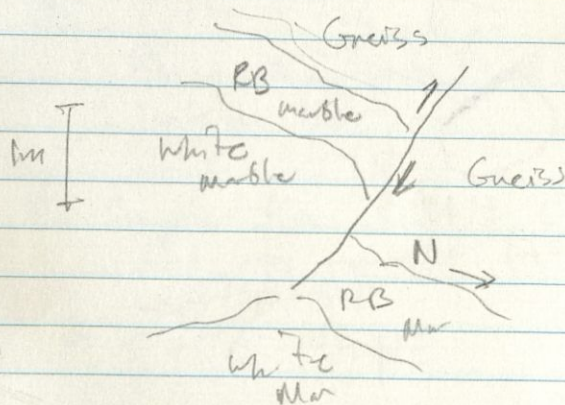 Gneiss
RB
marble
1m
white
marble
Gneiss
N
RB
Mar
white
Mar